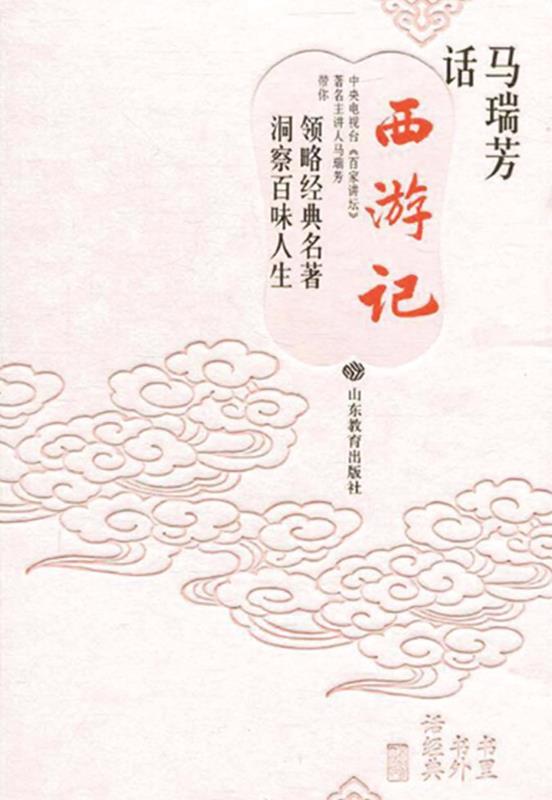 马瑞芳
话
西游记
中央电视台《百家讲坛》
著名主讲人马瑞芳
带你
领略经典名著
洞察百味人生
山东教育出版社
书里
书外
话经典